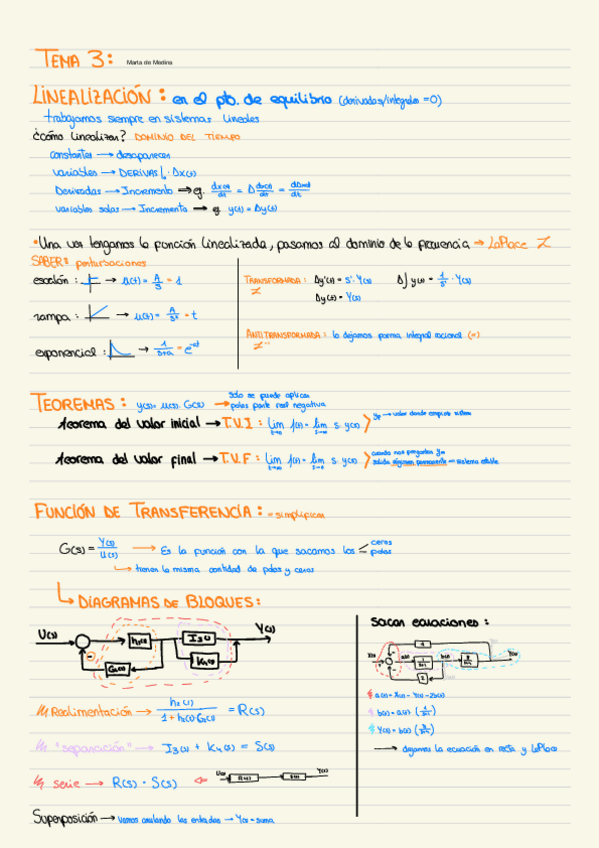 TEMA 3: Marta de Medina
LINEALIZACIÓN: en el pto. de equilibrio (derivadas/integrales = 0)
trabajamos siempre en sistemas lineales
¿cómo linealizar? DOMINIO DEL TIEMPO
constantes → desaparecen
variables → DERIVAS | · Δx(t)
Derivadas → Incremento → eg. dx(t)/dt = Δ dx(t)/dt = dΔx(t)/dt
variables solas → Incremento → eg y(t) = Δy(t)
• Una vez tengamos la función linealizada, pasamos al dominio de la frecuencia → LaPlace Z
SABER: perturbaciones
escalón: → u(t) = A/S = 1
rampa: → u(t) = A/S² = t
exponencial: → 1/(s+a) = e^-at
TRANSFORMADA: Δy'(t) = s · Y(s) Δ∫y(t) = 1/s · Y(s)
Z Δy(t) = Y(s)
ANTITRANSFORMADA: lo dejamos forma integral racional (=)
Z⁻¹
TEOREMAS: y(s) = u(s) · G(s) → solo se puede aplicar
polos parte real negativa
teorema del valor inicial → T.V.I: lim f(t) = lim s · y(s) → valor donde empieza sistema
teorema del valor final → T.V.F: lim f(t) = lim s · y(s) cuando nos preguntan
salida régimen permanente = sistema estable
FUNCIÓN DE TRANSFERENCIA: = simplificar
G(s) = Y(s)/U(s) → Es la función con la que sacamos los ceros
polos
→ tienen la misma cantidad de polos y ceros
DIAGRAMAS DE BLOQUES:
U(s) h₂(s) I₃(s) Y(s)
G₂(s) K₄(s)
Realimentación → h₂(s)/(1 + h₂(s)·G₂(s)) = R(s)
"separación" → I₃(s) + K₄(s) = S(s)
serie → R(s) · S(s) U(s) R(s) S(s) Y(s)
Superposición → vamos anulando las entradas → Y(s) = suma
sacar ecuaciones:
X(s) a(s) b(s) Y(s)
a(s) = X(s) - Y(s) - 2b(s)
→ dejamos la ecuación en recta y LaPlace